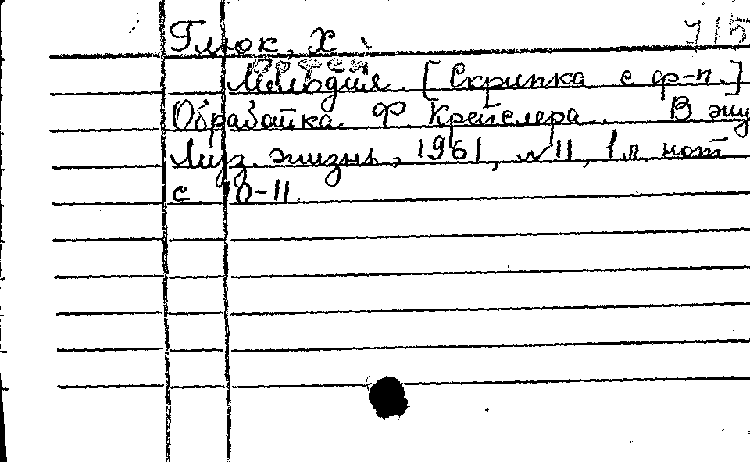 Глюк, Х. 715
Мелодия. [Скрипка с ф-п.]
Обработка Ф Крейслера. В жу
Муз. жизнь, 1961, №11, 1 л. нот
с 10-11